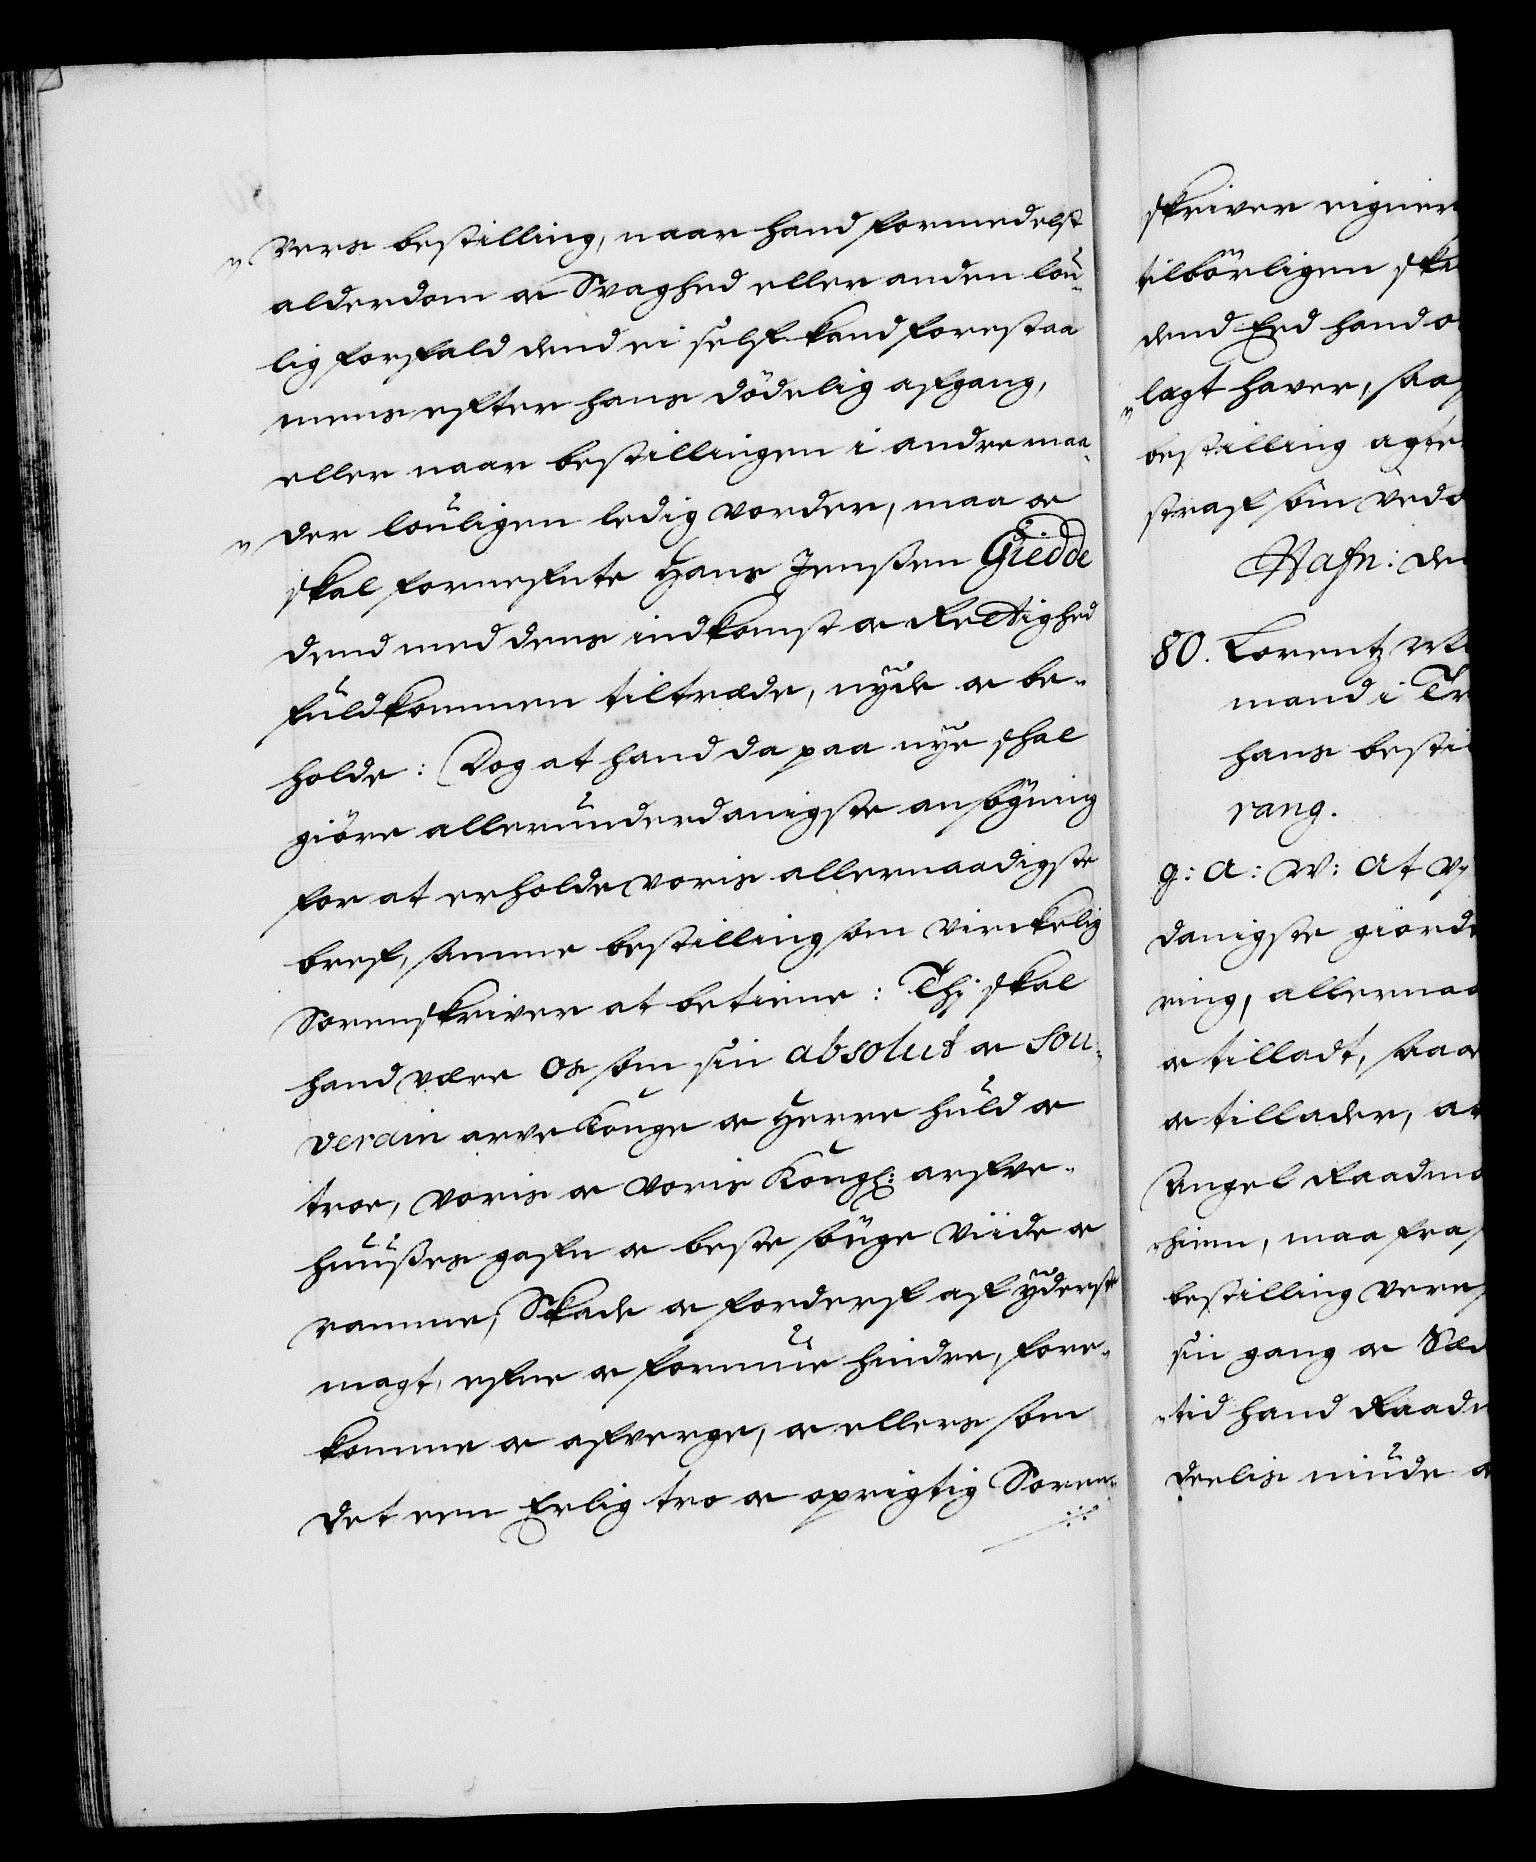 vers bestilling, naar hand formedelst
alderdom og Svaghed eller anden lou-
lig forfald dend ei sielf kand forestaa
mens efter hans dödelig afgang,
eller naar bestillingen i andre maa-
der louligen ledig vorder, maa og
skal formeste Hans Jenssen Giedde
dend med dens indkomst og Rettighed
fuldkommen tiltræde, nyde og be-
holde: Dog at hand da paa nye skal
giöre allerunderdanigste ansögning
for at erholde voris allernaadigste
bref, samme bestilling som virckelig
Sorenskriver at betiene: Thj skal
hand være os som sin absolut og Sou-
verain arve Konge og Herre huld og
troe, voris og voris Kongl: arfve-
huusses gafn og beste söge viide og
ramme, Skade og forderf af yderste
magt, efne og formue hindre, fore-
komme og afverge, og ellers som
det een Erlig tro og oprigtig Soren-
skriver eigner
tilbörligen ska
dend Eed hand o
lagt haver, saa
bestilling agte
straf som vedo
Hafn: de
80. Lorentz
mand i Tr
hans besti
rang.
g: A: W: At Vj
danigste giörd
ring, allernaa
og tilladt, saa
og tillader, at
Angel Raadma
hiem, maa fra
bestilling vere
sin gang og Sæ
tid hand Raad
deelis niude o